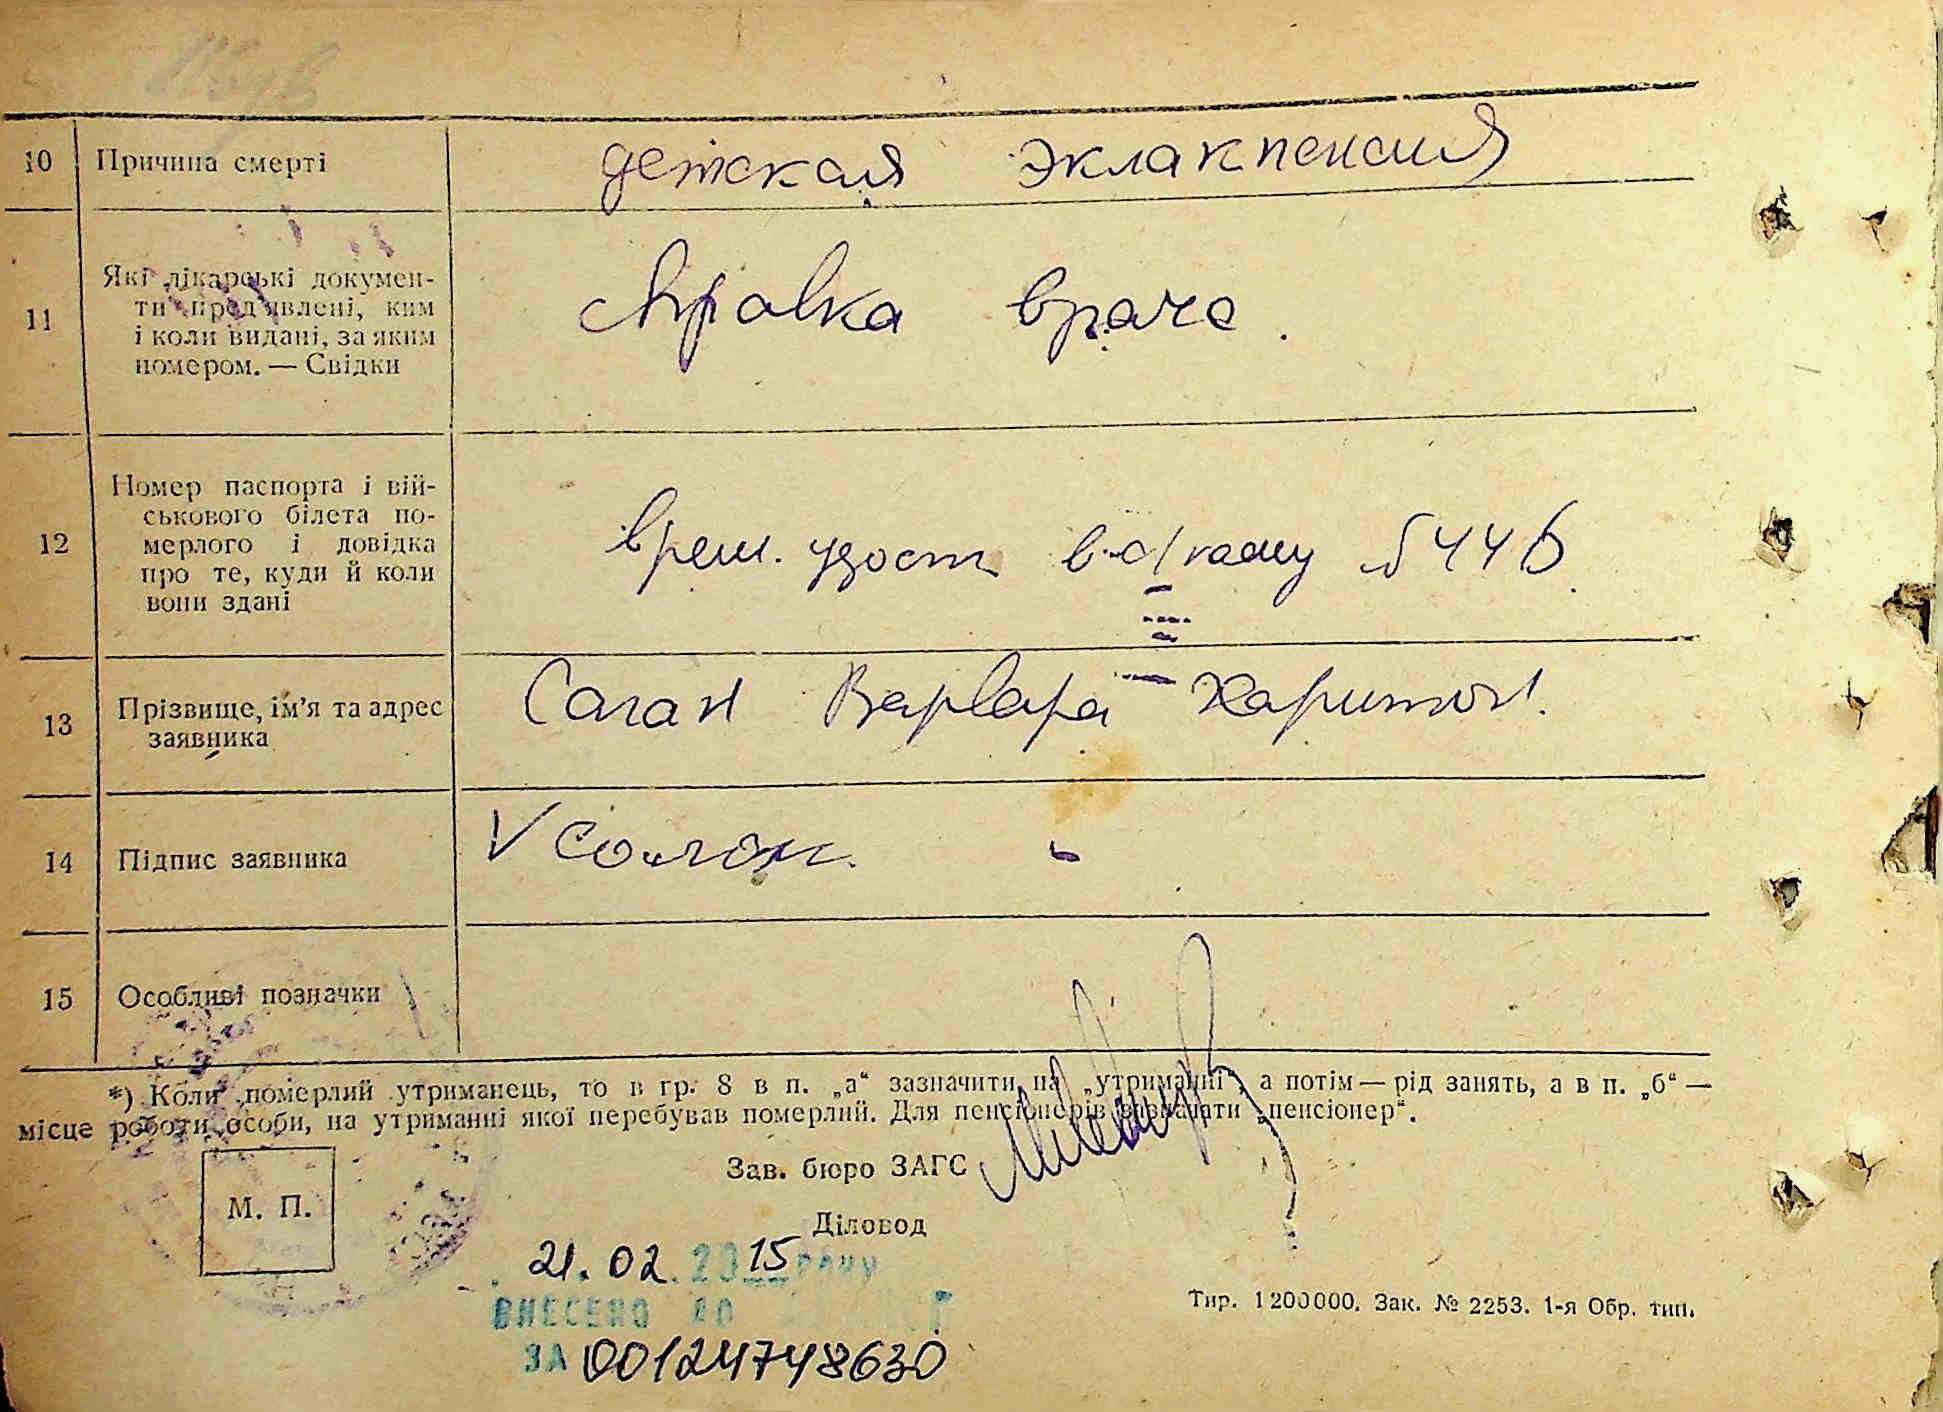 10 Причина смерті детская эклакпенсия
11 Які лікарські докумен-
ти пред'явлені, ким
і коли видані, за яким
номером. — Свідки
справка врача.
12 Номер паспорта і вій-
ськового білета по-
мерлого і довідка
про те, куди й коли
вони здані
врем. удост
13 Прізвище, ім'я та адрес
заявника
Саган Варвара Харитон.
14 Підпис заявника
15 Особливі позначки
*) Коли померлий утриманець, то в гр. 8 в п. „а“ зазначити на „утриманні“, а потім — рід занять, а в п. „б“ —
місце роботи особи, на утриманні якої перебував померлий. Для пенсіонерів зазначати „пенсіонер“.
Зав. бюро ЗАГС
М. П.
Діловод
21.02.2015 року
ВНЕСЕНО ДО
ЗА 00124748630
Тир. 1200000. Зак. № 2253. 1-я Обр. тип.